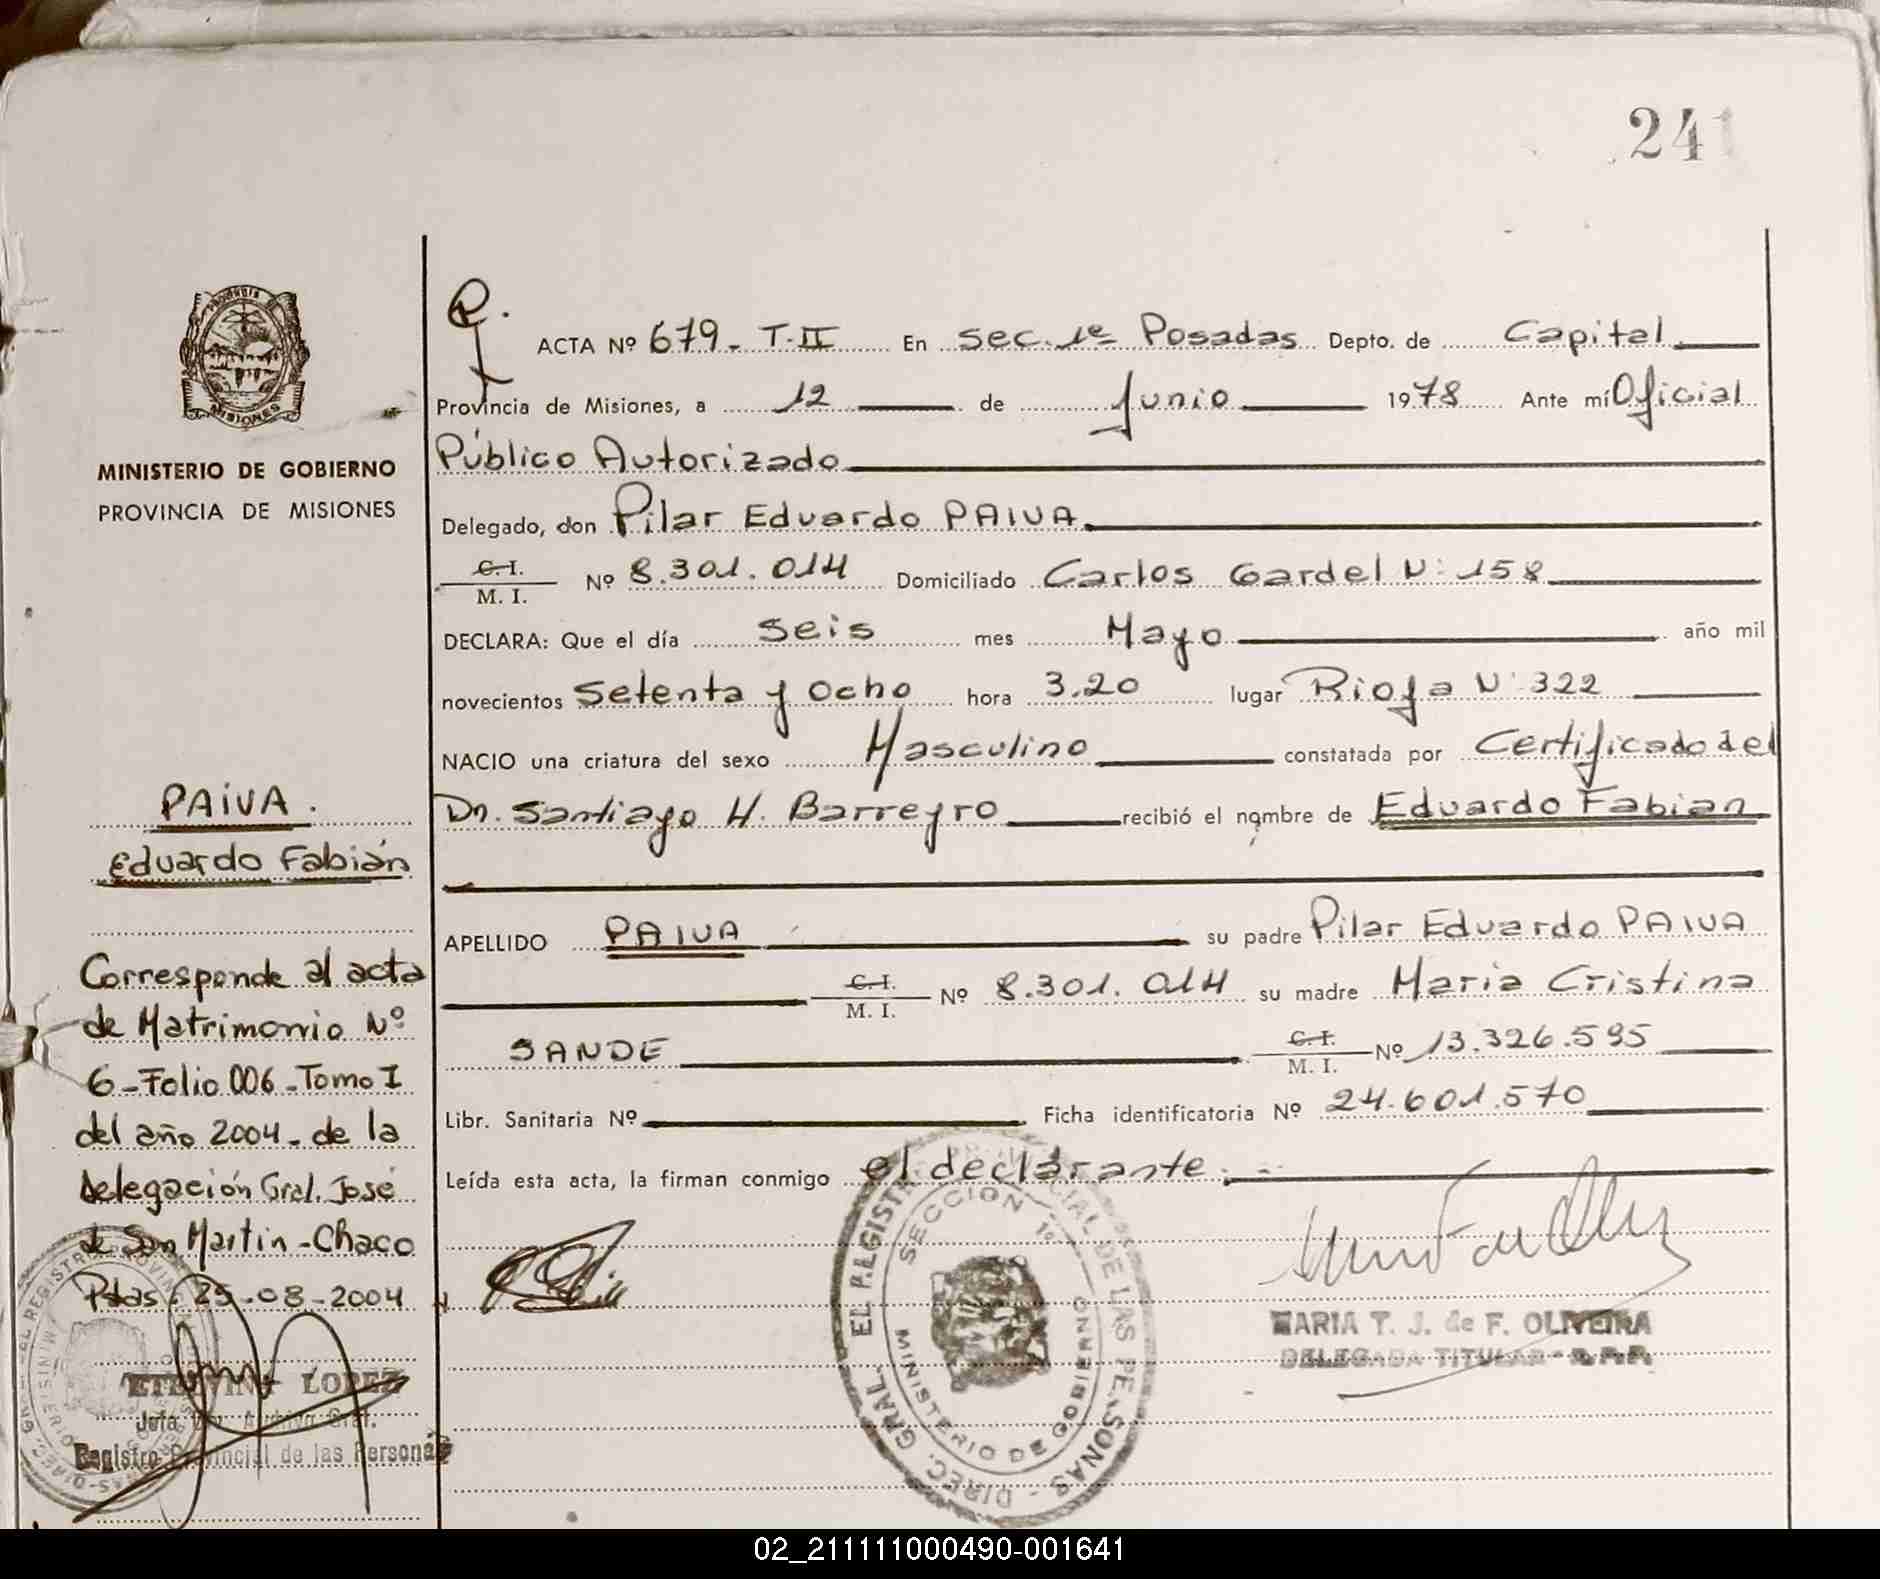 241
PROVINCIA DE
MISIONES
MINISTERIO DE GOBIERNO
PROVINCIA DE MISIONES
PAIVA.
Eduardo Fabián
Corresponde al acta
de Matrimonio Nº
6-Folio 006-Tomo I
del año 2004- de la
Delegación Gral. José
de San Martin-Chaco
Pdas. 25-08-2004
LOPEZ
Jefa Archivo Gral.
Registro Provincial de las Personas
ACTA Nº 679- T-II En Sec. 1e Posadas Depto. de Capital
Provincia de Misiones, a 12 de Junio 1978 Ante mí Oficial
Público Autorizado
Delegado, don Pilar Eduardo PAIVA
C. I.
M. I. Nº 8.301.014 Domiciliado Carlos Gardel Nº 158
DECLARA: Que el día Seis mes Mayo año mil
novecientos Setenta y Ocho hora 3.20 lugar Rioja Nº 322
NACIO una criatura del sexo Masculino constatada por Certificado del
Dr. Santiago H. Barreyro recibió el nombre de Eduardo Fabian
APELLIDO PAIVA su padre Pilar Eduardo PAIVA
C. I.
M. I. Nº 8.301.014 su madre Maria Cristina
SANDE C. I.
M. I. Nº 13.326.595
Libr. Sanitaria Nº Ficha identificatoria Nº 24.601.570
Leída esta acta, la firman conmigo el declarante.-
DIREC. GRAL. EL REGISTRO PROVINCIAL DE LAS PERSONAS
SECCION 1º
MINISTERIO DE GOBIERNO
MARIA T. J. de F. OLIVEIRA
DELEGADA TITULAR - R.P.P.
02_211111000490-001641